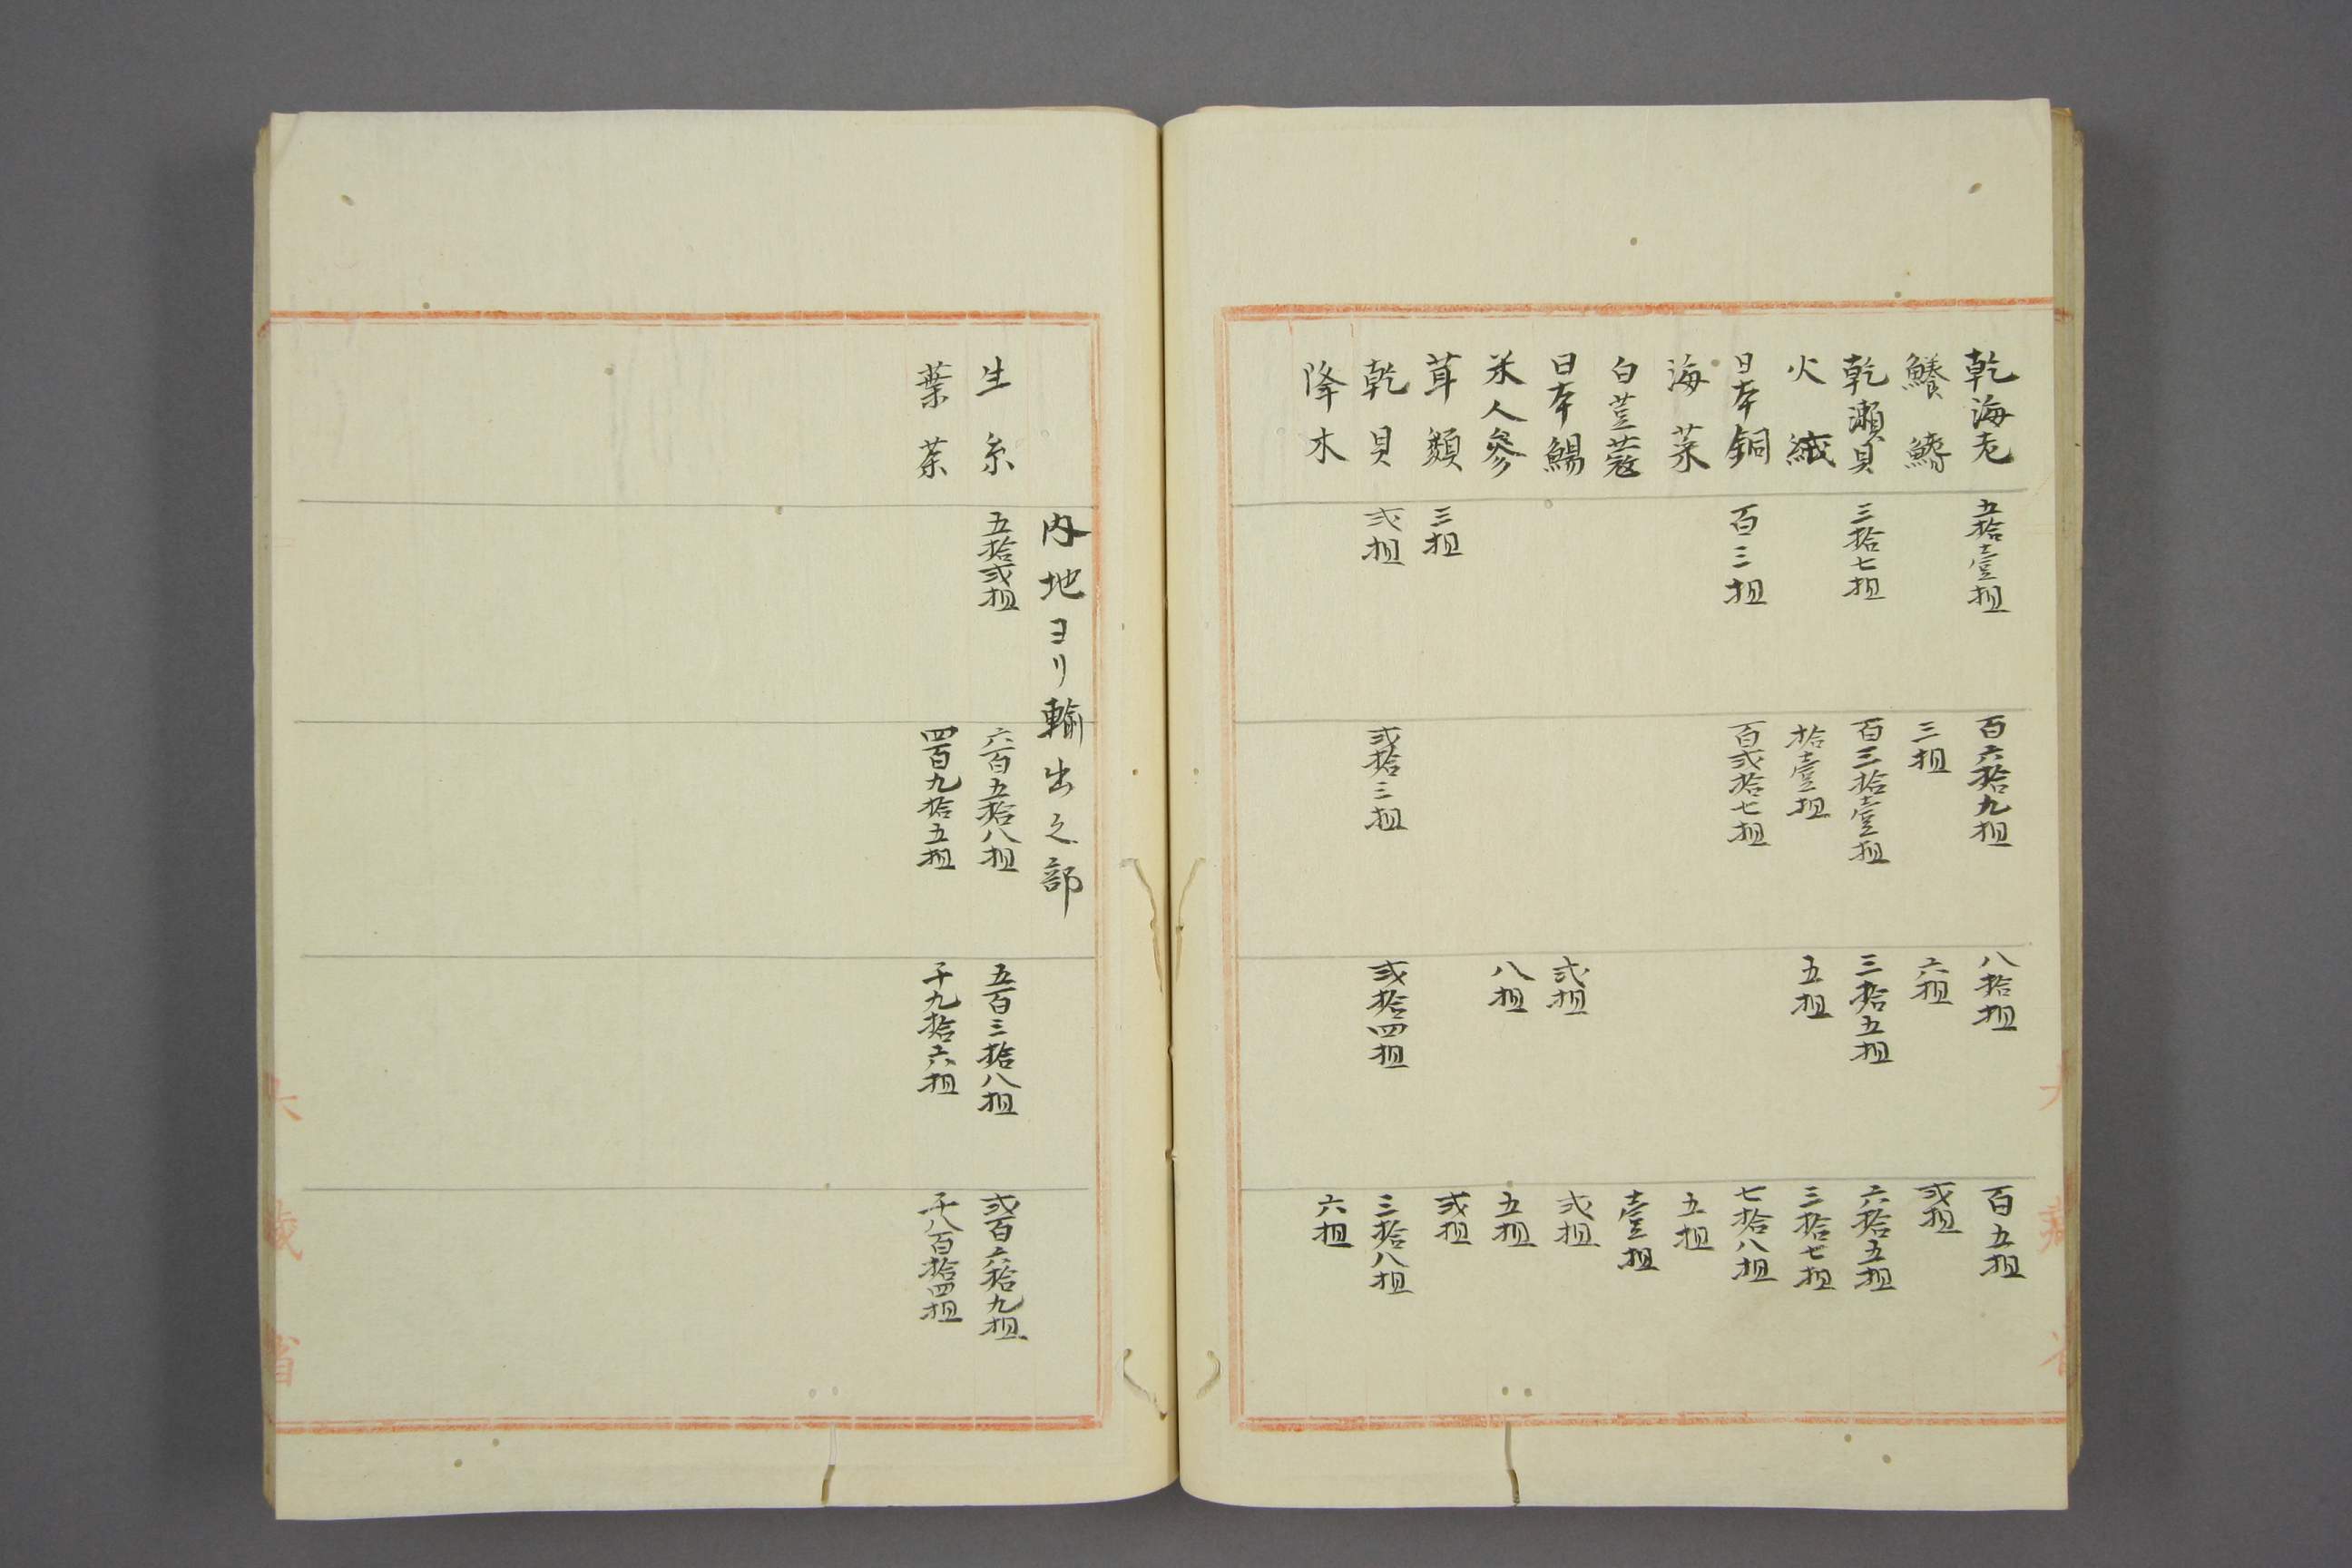 乾海老 五拾壹担 百六拾九担 八拾担 百五担
鱶鰭 三担 六担 弐担
乾瀬貝 三拾七担 百三拾壹担 三拾五担 六拾五担
火絨 拾壹担 五担 三拾七担
日本銅 百三担 百弐拾七担 七拾八担
海菜 五担
白荳蔲 壹担
日本鰑 弐担 弐担
米人參 八担 五担
茸類 三担 弐担
乾貝 弐担 弐拾三担 弐拾四担 三拾八担
降木 六担
内地ヨリ輸出之部
生糸 五拾弐担 六百五拾八担 五百三拾八担 弐百六拾九担
葉茶 四百九拾五担 千九拾六担 千八百拾四担
大藏省